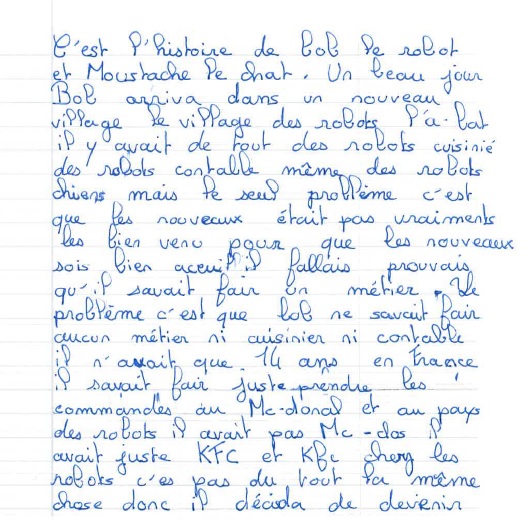 C'est l'histoire de bob le robot
et Moustache le chat. Un beau jour
Bob arriva dans un nouveau
village le village des robots l'a-bat
il y avait de tout des robots cuisinié
des robots contable même des robots
chiens mais le seul problème c'est
que les nouveaux était pas vraiments
les bien venu pour que les nouveaux
sois bien aceuil il fallais prouvais
qu'il savait fair un métier. Le
problème c'est que bob ne savait fair
aucun métier ni cuisinier ni contable
il n'avait que 14 ans en France
il savait fair juste prendre les
commandes au Mc-donal et au pays
des robots il avait pas Mc-dos il
avait juste KFC et Kfc chez les
robots c'es pas du tout la même
chose donc il décida de devenir